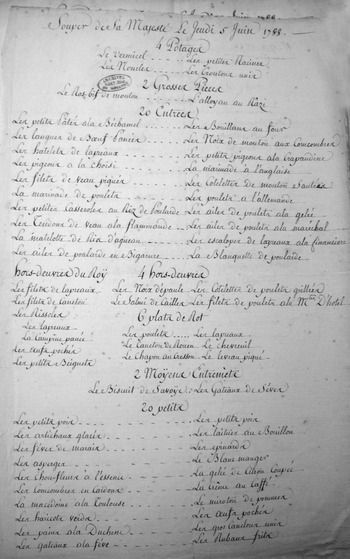 Souper de Sa Majesté Le Jeudi 5 Juin 1788.
4 Potages
Le vermicel - - - - - Les petites Racines
Les Noucles - - - - Les Croutons unis
2 Grosses Pièces
Le Ros-bif de mouton - - - L'alloyau au Rézi
20 Entrées
Les petits Patés à la Béchamel - - - - Les Bouillans au four
Les langues de Bœuf - - - - Les Noix de mouton aux Concombres
Les hatelets de lapreaux - - - - Les petits pigeons à la Crapaudine
Les pigeons à la - - - - La marinade à l'anglaise
Les filets de veau piqués - - - - Les Cotelettes de mouton Sautées
La marinade de poulets - - - - Les poulets à l'allemande
Les petites Casseroles au Riz de Poularde - - Les ailes de poulets à la gelée
Les Tendons de veau à la flammande - - Les ailes de poulets à la maréchal
La matelotte de Ris d'agneau - - - - Les escalopes de lapreaux à la financiere
Les ailes de poularde en Bigarure - - - La Blanquette de poularde
hors-deuvres du Roy 4 hors-deuvres
Les filets de lapreaux - - Les Noix d'épaule - - Les Cotelettes de poulets grillées
Les filets de Caneton - - Le Salmi de Cailles - - Les filets de poulets à la M. d'hotel
Les Rissoles 6 plats de Rot
Les lapreaux - - - Les poulets - - - - Les lapreaux
La Campine panée - - - Le Caneton de Rouen - - Le Chevreuil
Les œufs pochés - - - Le Chapon au Cresson - - Le levreau piqué
Les petits Beignets
2 Moyens Entremets
Le Biscuit de Savoye - - Les Gateaux de Sèves
20 petits
Les petits pois - - - - Les petits pois
Les artichaux glacés - - - - Les laitues au Bouillon
Les fèves de marais - - - - Les épinards
Les asperges - - - - Le Blanc manger
Les Chou-fleurs à l'essence - - - - La gelée de Citron Coupée
Les Concombres en Cardons - - - - La Crême au Caffé
La macédoine à la Toulouse - - - - Le miroton de pommes
Les haricots verds - - - - Les Œufs pochés
Les pains à la Duchesse - - - - Les gros Canelons unis
Les gateaux à la fève - - - - Les Rubans frits